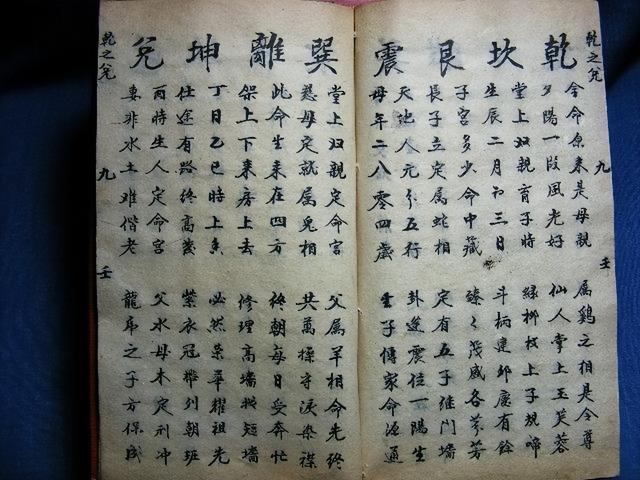 乾坎艮震巽離坤兌
乾之兌 九 壬
命原来是母親 属鷄之相是令尊
夕陽一段風光好 仙人掌上玉芙蓉
堂上双親育子時 緑柳枝上子規啼
生辰二月初三日 斗柄建卯慶有餘
子宮多少命中藏 臻々茂盛各芬芳
長子立定属蛇相 定有五子維門墻
天地人元分五行 卦逢震位一陽生
母年二八零四歲 子傳家命源通
堂上双親定命宫 父属羊相命先終
慈母定就属兎相 共萬操守淚染襟
此命生来在四方 終朝每日受奔忙
架上下来房上去 修理高墙接短墙
丁日乙巳時上 必然荣華耀祖先
仕途有路終高 紫衣冠帶列朝班
酉時生人定命宫 父水母木定刑冲
妻非水土难偕老 龍虎之子方保成
乾之兌 九 壬